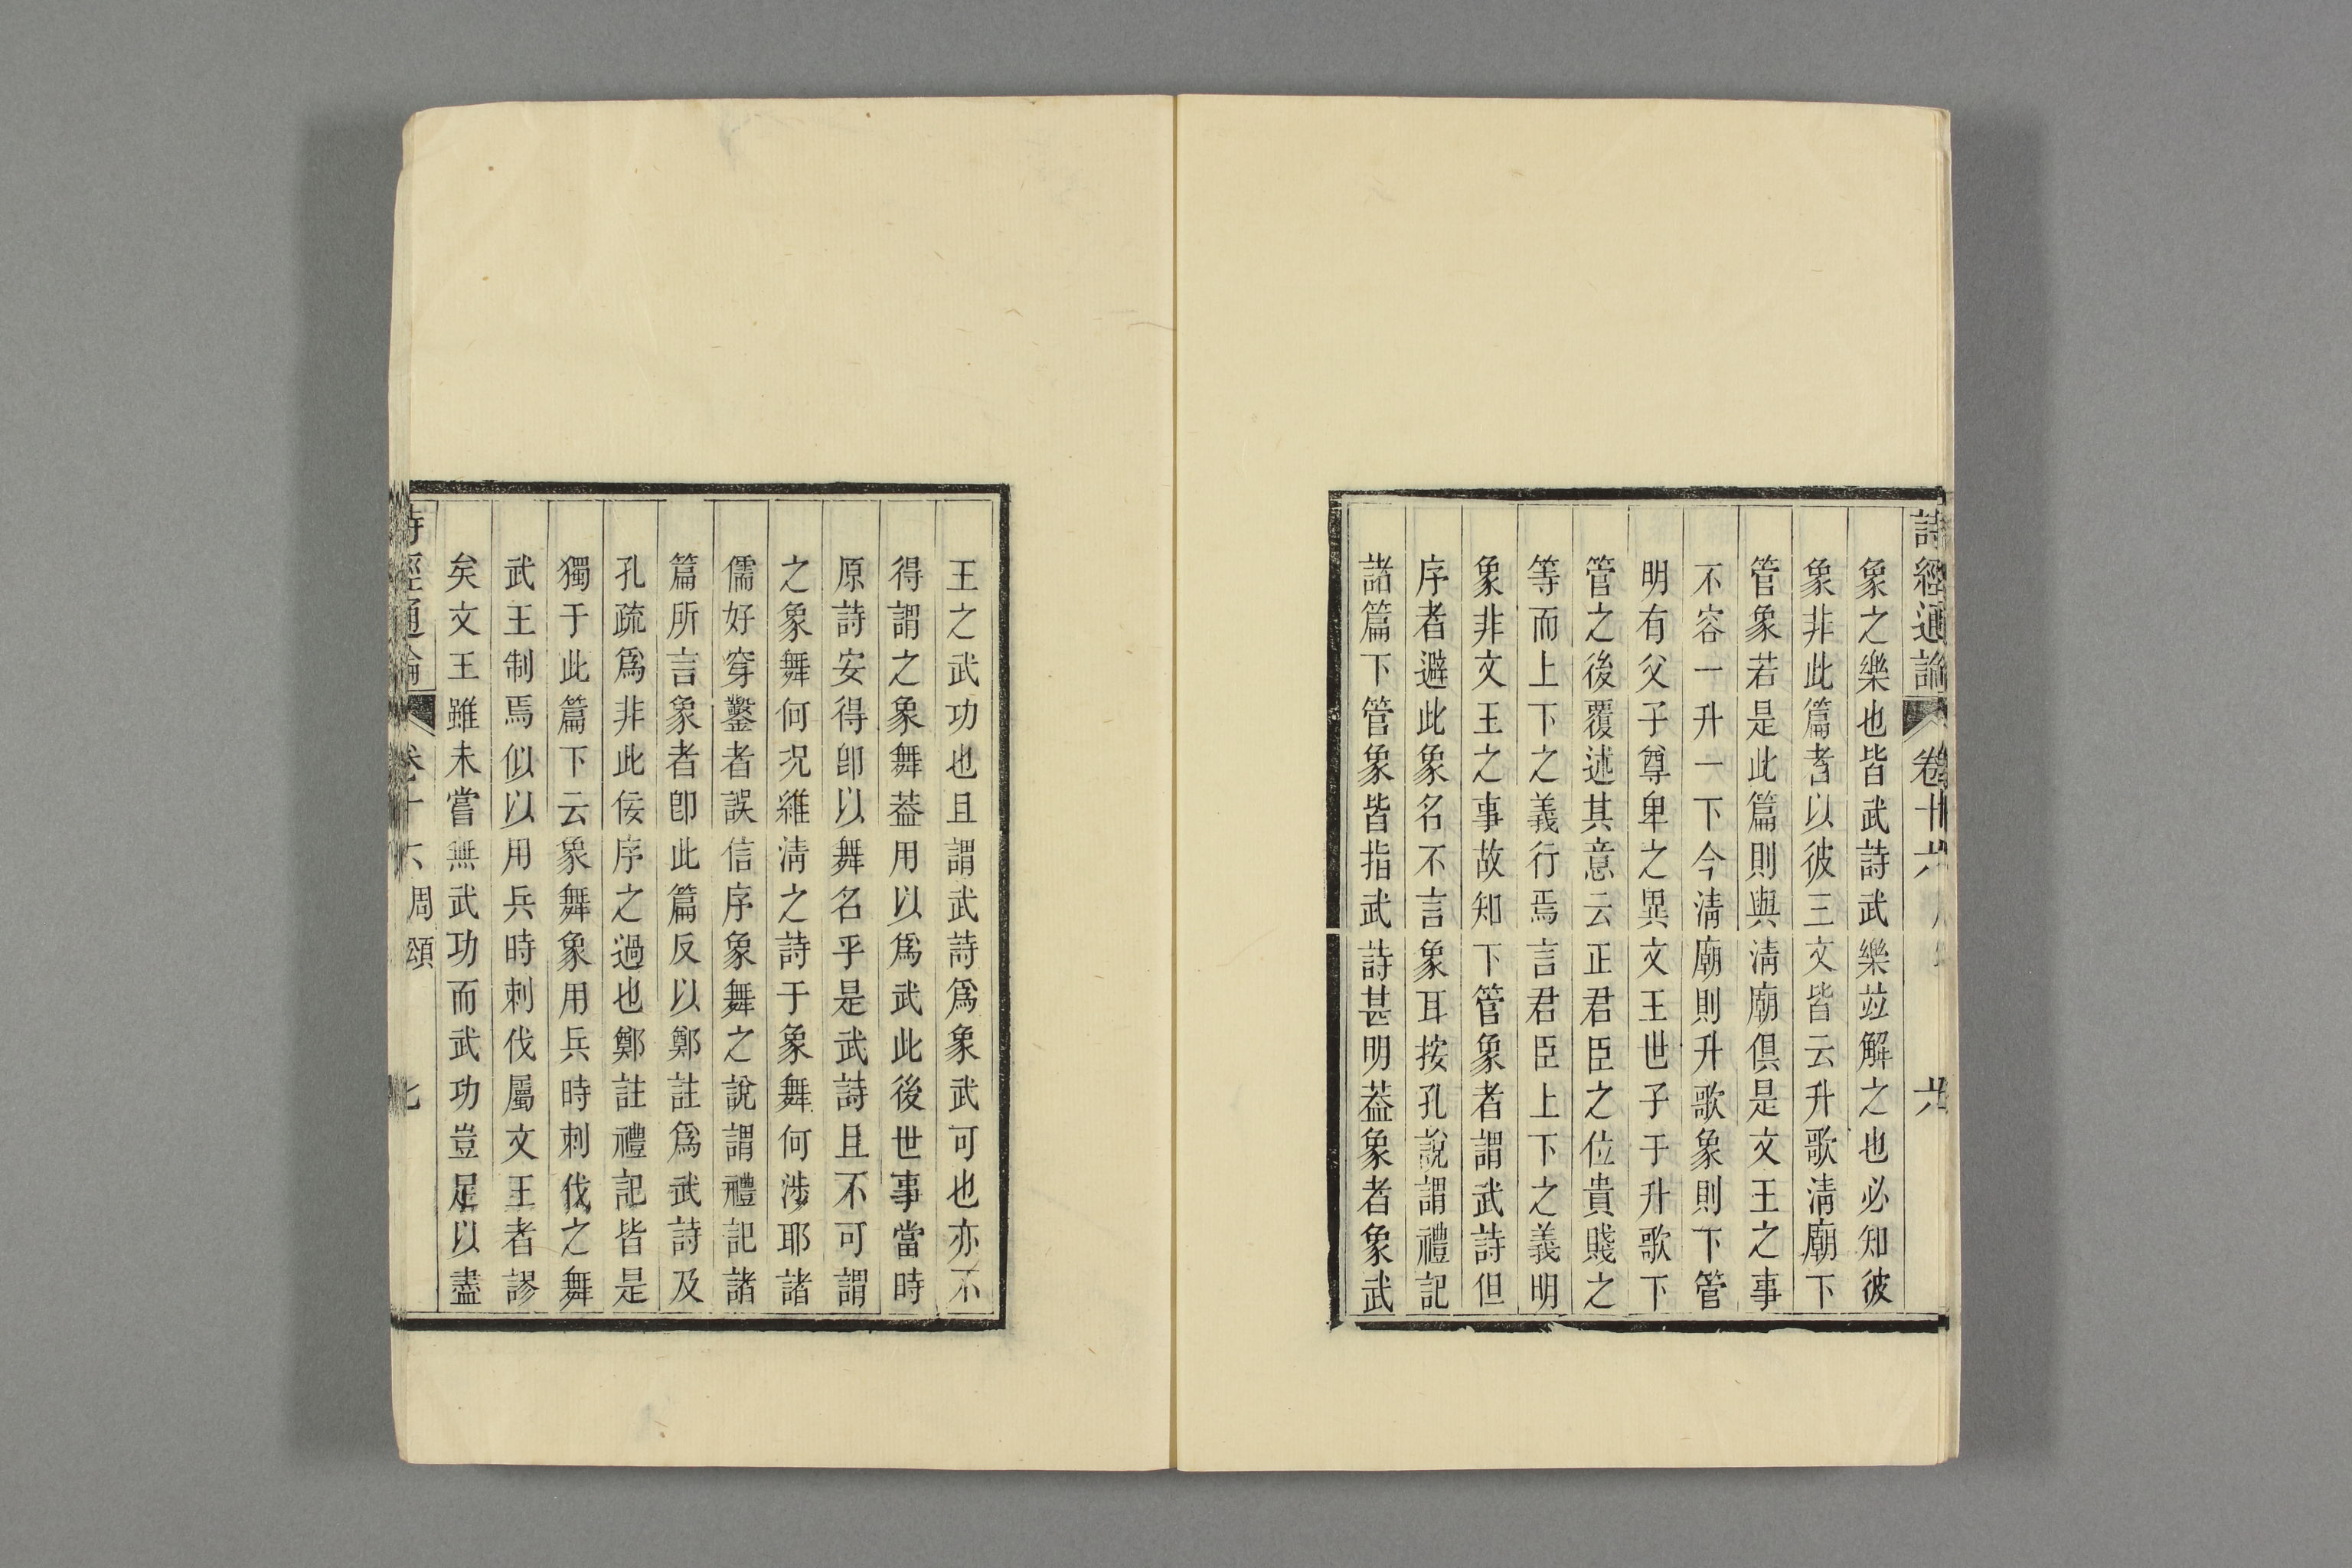 詩經通論 卷十六 六
象之樂也皆武詩武樂竝解之也必知彼
象非此篇者以彼三文皆云升歌清廟下
管象若是此篇則與清廟俱是文王之事
不容一升一下今清廟則升歌象則下管
明有父子尊卑之異文王世子于升歌下
管之後覆述其意云正君臣之位貴賤之
等而上下之義行焉言君臣上下之義明
象非文王之事故知下管象者謂武詩但
序者避此象名不言象耳按孔說謂禮記
諸篇下管象皆指武詩甚明葢象者象武
王之武功也且謂武詩爲象武可也亦不
得謂之象舞葢用以爲武此後世事當時
原詩安得卽以舞名乎是武詩且不可謂
之象舞何况維清之詩于象舞何涉耶諸
儒好穿鑿者誤信序象舞之說謂禮記諸
篇所言象者卽此篇反以鄭註爲武詩及
孔疏爲非此佞序之過也鄭註禮記皆是
獨于此篇下云象舞象用兵時刺伐之舞
武王制焉似以用兵時刺伐屬文王者謬
矣文王雖未嘗無武功而武功豈足以盡
詩經通論 卷十六 周頌 七